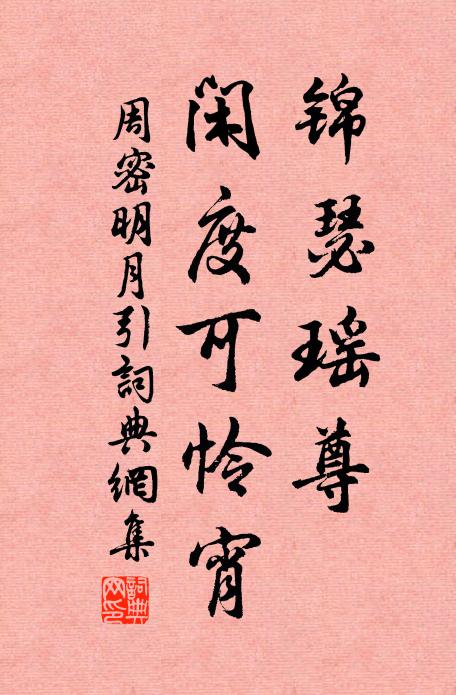 锦瑟瑶尊
闲度可怜宵
周密明月引詞典網集
詞典網印